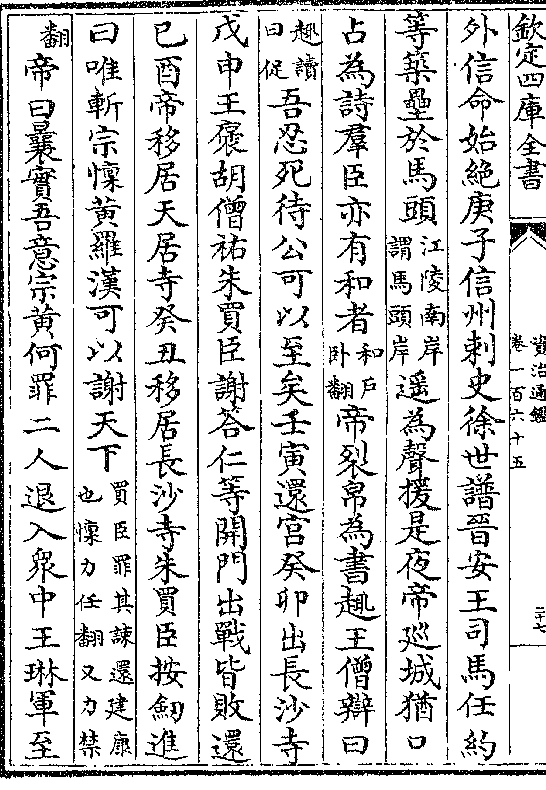 欽定四庫全書
資治通鑑
卷一百六十五
二十七
外信命始絶庚子信州刺史徐世譜晉安王司馬任約
等築壘於馬頭江陵南岸
謂馬頭岸遥為聲援是夜帝廵城猶口
占為詩羣臣亦有和者和戸
卧翻帝裂帛為書趣王僧辯曰
趣讀
曰促吾忍死待公可以至矣壬寅還宫癸卯出長沙寺
戊申王襃胡僧祐朱買臣謝答仁等開門出戰皆敗還
已酉帝移居天居寺癸丑移居長沙寺朱買臣按劔進
曰唯斬宗懍黄羅漢可以謝天下買臣罪其諫還建康
也懍力任翻又力禁
翻帝曰曩實吾意宗黄何罪二人退入衆中王琳軍至